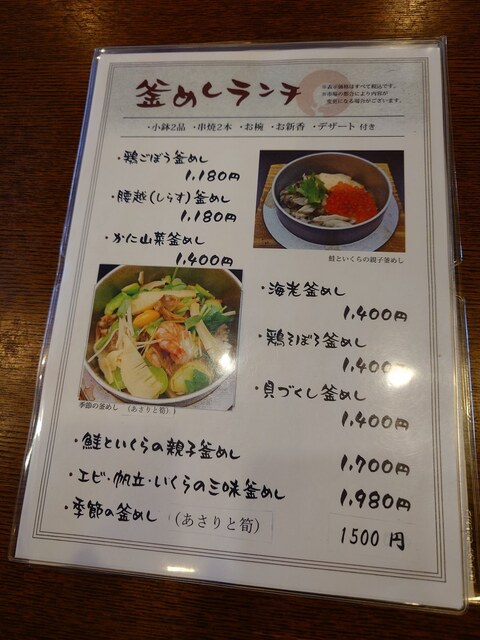 釜めしランチ
※表示価格はすべて税込です。
※市場の都合により内容が
変更になる場合がございます。
・小鉢2品 ・串焼2本 ・お椀 ・お新香 ・デザート 付き
・鶏ごぼう釜めし
1,180円
・腰越(しらす)釜めし
1,180円
・かに山菜釜めし
1,400円
鮭といくらの親子釜めし
・海老釜めし
1,400円
・鶏そぼろ釜めし
1,400円
・貝づくし釜めし
1,400円
季節の釜めし (あさりと筍)
・鮭といくらの親子釜めし
1,700円
・エビ・帆立・いくらの三味釜めし
1,980円
・季節の釜めし (あさりと筍)
1500 円